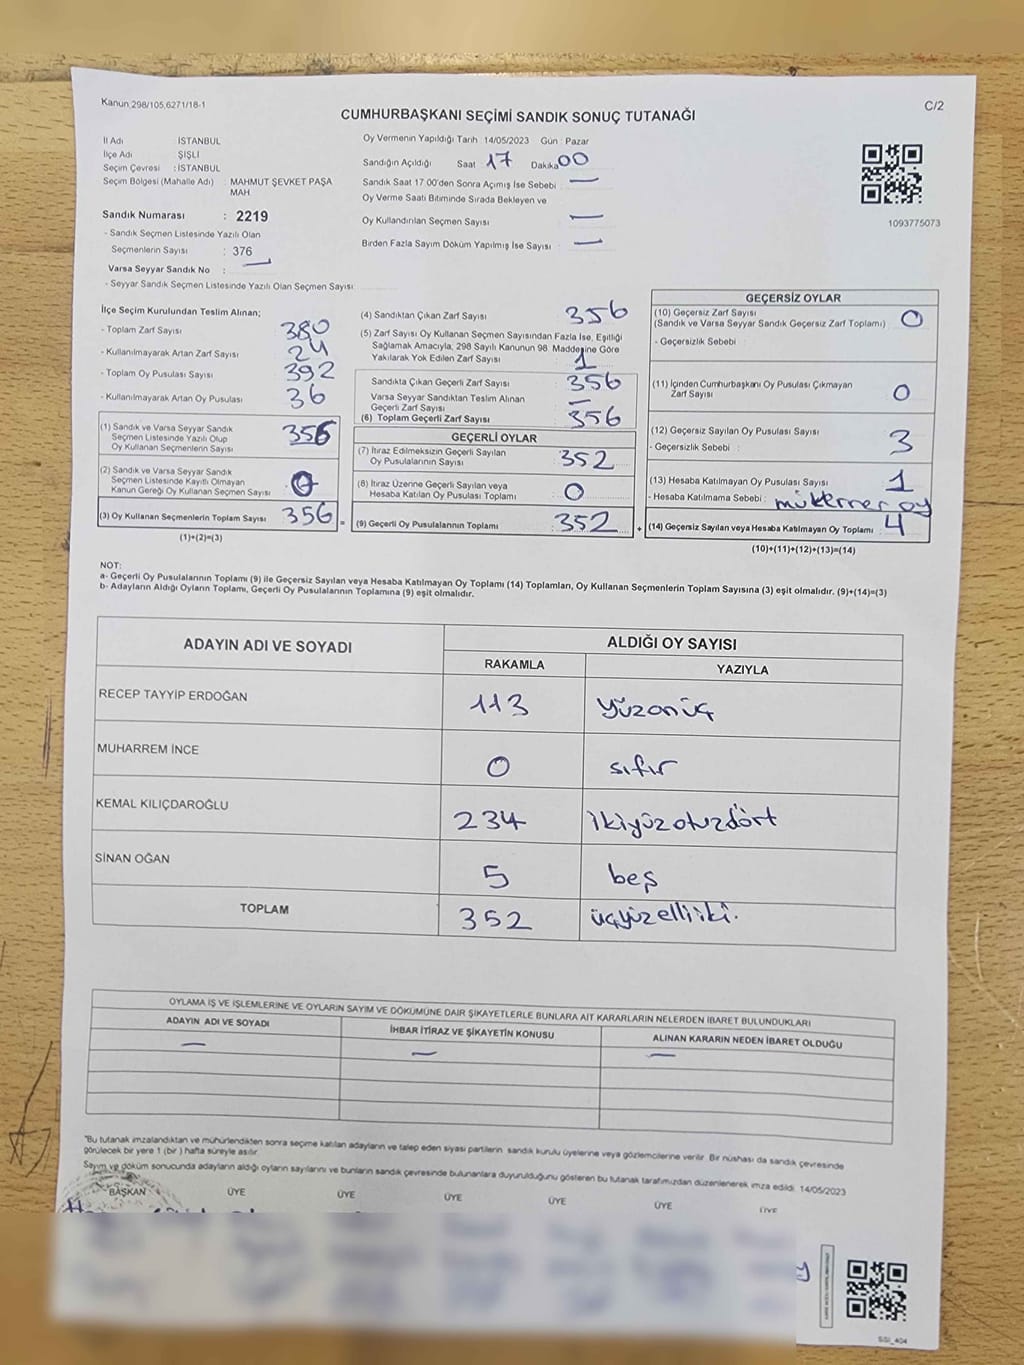 Kanun 298/105,6271/18-1
C/2
CUMHURBAŞKANI SEÇİMİ SANDIK SONUÇ TUTANAĞI
İl Adı : İSTANBUL
İlçe Adı : ŞİŞLİ
Seçim Çevresi : İSTANBUL
Seçim Bölgesi (Mahalle Adı) : MAHMUT ŞEVKET PAŞA
MAH
Sandık Numarası : 2219
- Sandık Seçmen Listesinde Yazılı Olan
Seçmenlerin Sayısı : 376
Varsa Seyyar Sandık No : —
- Seyyar Sandık Seçmen Listesinde Yazılı Olan Seçmen Sayısı:
Oy Vermenin Yapıldığı Tarih 14/05/2023 Gün : Pazar
Sandığın Açıldığı Saat 17 Dakika 00
Sandık Saat 17 00'den Sonra Açımış İse Sebebi —
Oy Verme Saati Bitiminde Sırada Bekleyen ve
Oy Kullandırılan Seçmen Sayısı —
Birden Fazla Sayım Döküm Yapılmış İse Sayısı —
1093775073
İlçe Seçim Kurulundan Teslim Alınan;
- Toplam Zarf Sayısı 380
- Kullanılmayarak Artan Zarf Sayısı 24
- Toplam Oy Pusulası Sayısı 392
- Kullanılmayarak Artan Oy Pusulası 36
(1) Sandık ve Varsa Seyyar Sandık
Seçmen Listesinde Yazılı Olup
Oy Kullanan Seçmenlerin Sayısı 356
(2) Sandık ve Varsa Seyyar Sandık
Seçmen Listesinde Kayıtlı Olmayan
Kanun Gereği Oy Kullanan Seçmen Sayısı 0
(3) Oy Kullanan Seçmenlerin Toplam Sayısı 356 =
(1)+(2)=(3)
(4) Sandıktan Çıkan Zarf Sayısı 356
(5) Zarf Sayısı Oy Kullanan Seçmen Sayısından Fazla İse, Eşitliği
Sağlamak Amacıyla, 298 Sayılı Kanunun 98. Maddesine Göre
Yakılarak Yok Edilen Zarf Sayısı : 1
Sandıkta Çıkan Geçerli Zarf Sayısı 356
Varsa Seyyar Sandıktan Teslim Alınan
Geçerli Zarf Sayısı —
(6) Toplam Geçerli Zarf Sayısı 356
GEÇERLİ OYLAR
(7) İtiraz Edilmeksizin Geçerli Sayılan
Oy Pusulalarının Sayısı 352
(8) İtiraz Üzerine Geçerli Sayılan veya
Hesaba Katılan Oy Pusulası Toplamı 0
(9) Geçerli Oy Pusulalarının Toplamı 352 +
GEÇERSİZ OYLAR
(10) Geçersiz Zarf Sayısı
(Sandık ve Varsa Seyyar Sandık Geçersiz Zarf Toplamı) 0
- Geçersizlik Sebebi :
(11) İçinden Cumhurbaşkanı Oy Pusulası Çıkmayan
Zarf Sayısı 0
(12) Geçersiz Sayılan Oy Pusulası Sayısı 3
- Geçersizlik Sebebi :
(13) Hesaba Katılmayan Oy Pusulası Sayısı : 1
- Hesaba Katılmama Sebebi : mükerrer oy
(14) Geçersiz Sayılan veya Hesaba Katılmayan Oy Toplamı : 4
(10)+(11)+(12)+(13)=(14)
NOT:
a- Geçerli Oy Pusulalarının Toplamı (9) ile Geçersiz Sayılan veya Hesaba Katılmayan Oy Toplamı (14) Toplamları, Oy Kullanan Seçmenlerin Toplam Sayısına (3) eşit olmalıdır. (9)+(14)=(3)
b- Adayların Aldığı Oyların Toplamı, Geçerli Oy Pusulalarının Toplamına (9) eşit olmalıdır.
ADAYIN ADI VE SOYADI
ALDIĞI OY SAYISI
RAKAMLA YAZIYLA
RECEP TAYYİP ERDOĞAN 113 yüzonüç
MUHARREM İNCE 0 sıfır
KEMAL KILIÇDAROĞLU 234 ikiyüzotuzdört
SİNAN OĞAN 5 beş
TOPLAM 352 üçyüzelliiki.
OYLAMA İŞ VE İŞLEMLERİNE VE OYLARIN SAYIM VE DÖKÜMÜNE DAİR ŞİKAYETLERLE BUNLARA AİT KARARLARIN NELERDEN İBARET BULUNDUKLARI
ADAYIN ADI VE SOYADI İHBAR İTİRAZ VE ŞİKAYETİN KONUSU ALINAN KARARIN NEDEN İBARET OLDUĞU
— — —
"Bu tutanak imzalandıktan ve mühürlendikten sonra seçime katılan adayların ve talep eden siyasi partilerin sandık kurulu üyelerine veya gözlemcilerine verilir. Bir nüshası da sandık çevresinde
görülecek bir yere 1 (bir ) hafta süreyle asılır.
Sayım ve döküm sonucunda adayların aldığı oyların sayılarını ve bunların sandık çevresinde bulunanlara duyurulduğunu gösteren bu tutanak tarafımızdan düzenlenerek imza edildi. 14/05/2023
BAŞKAN ÜYE ÜYE ÜYE ÜYE ÜYE ÜYE
SSI_404